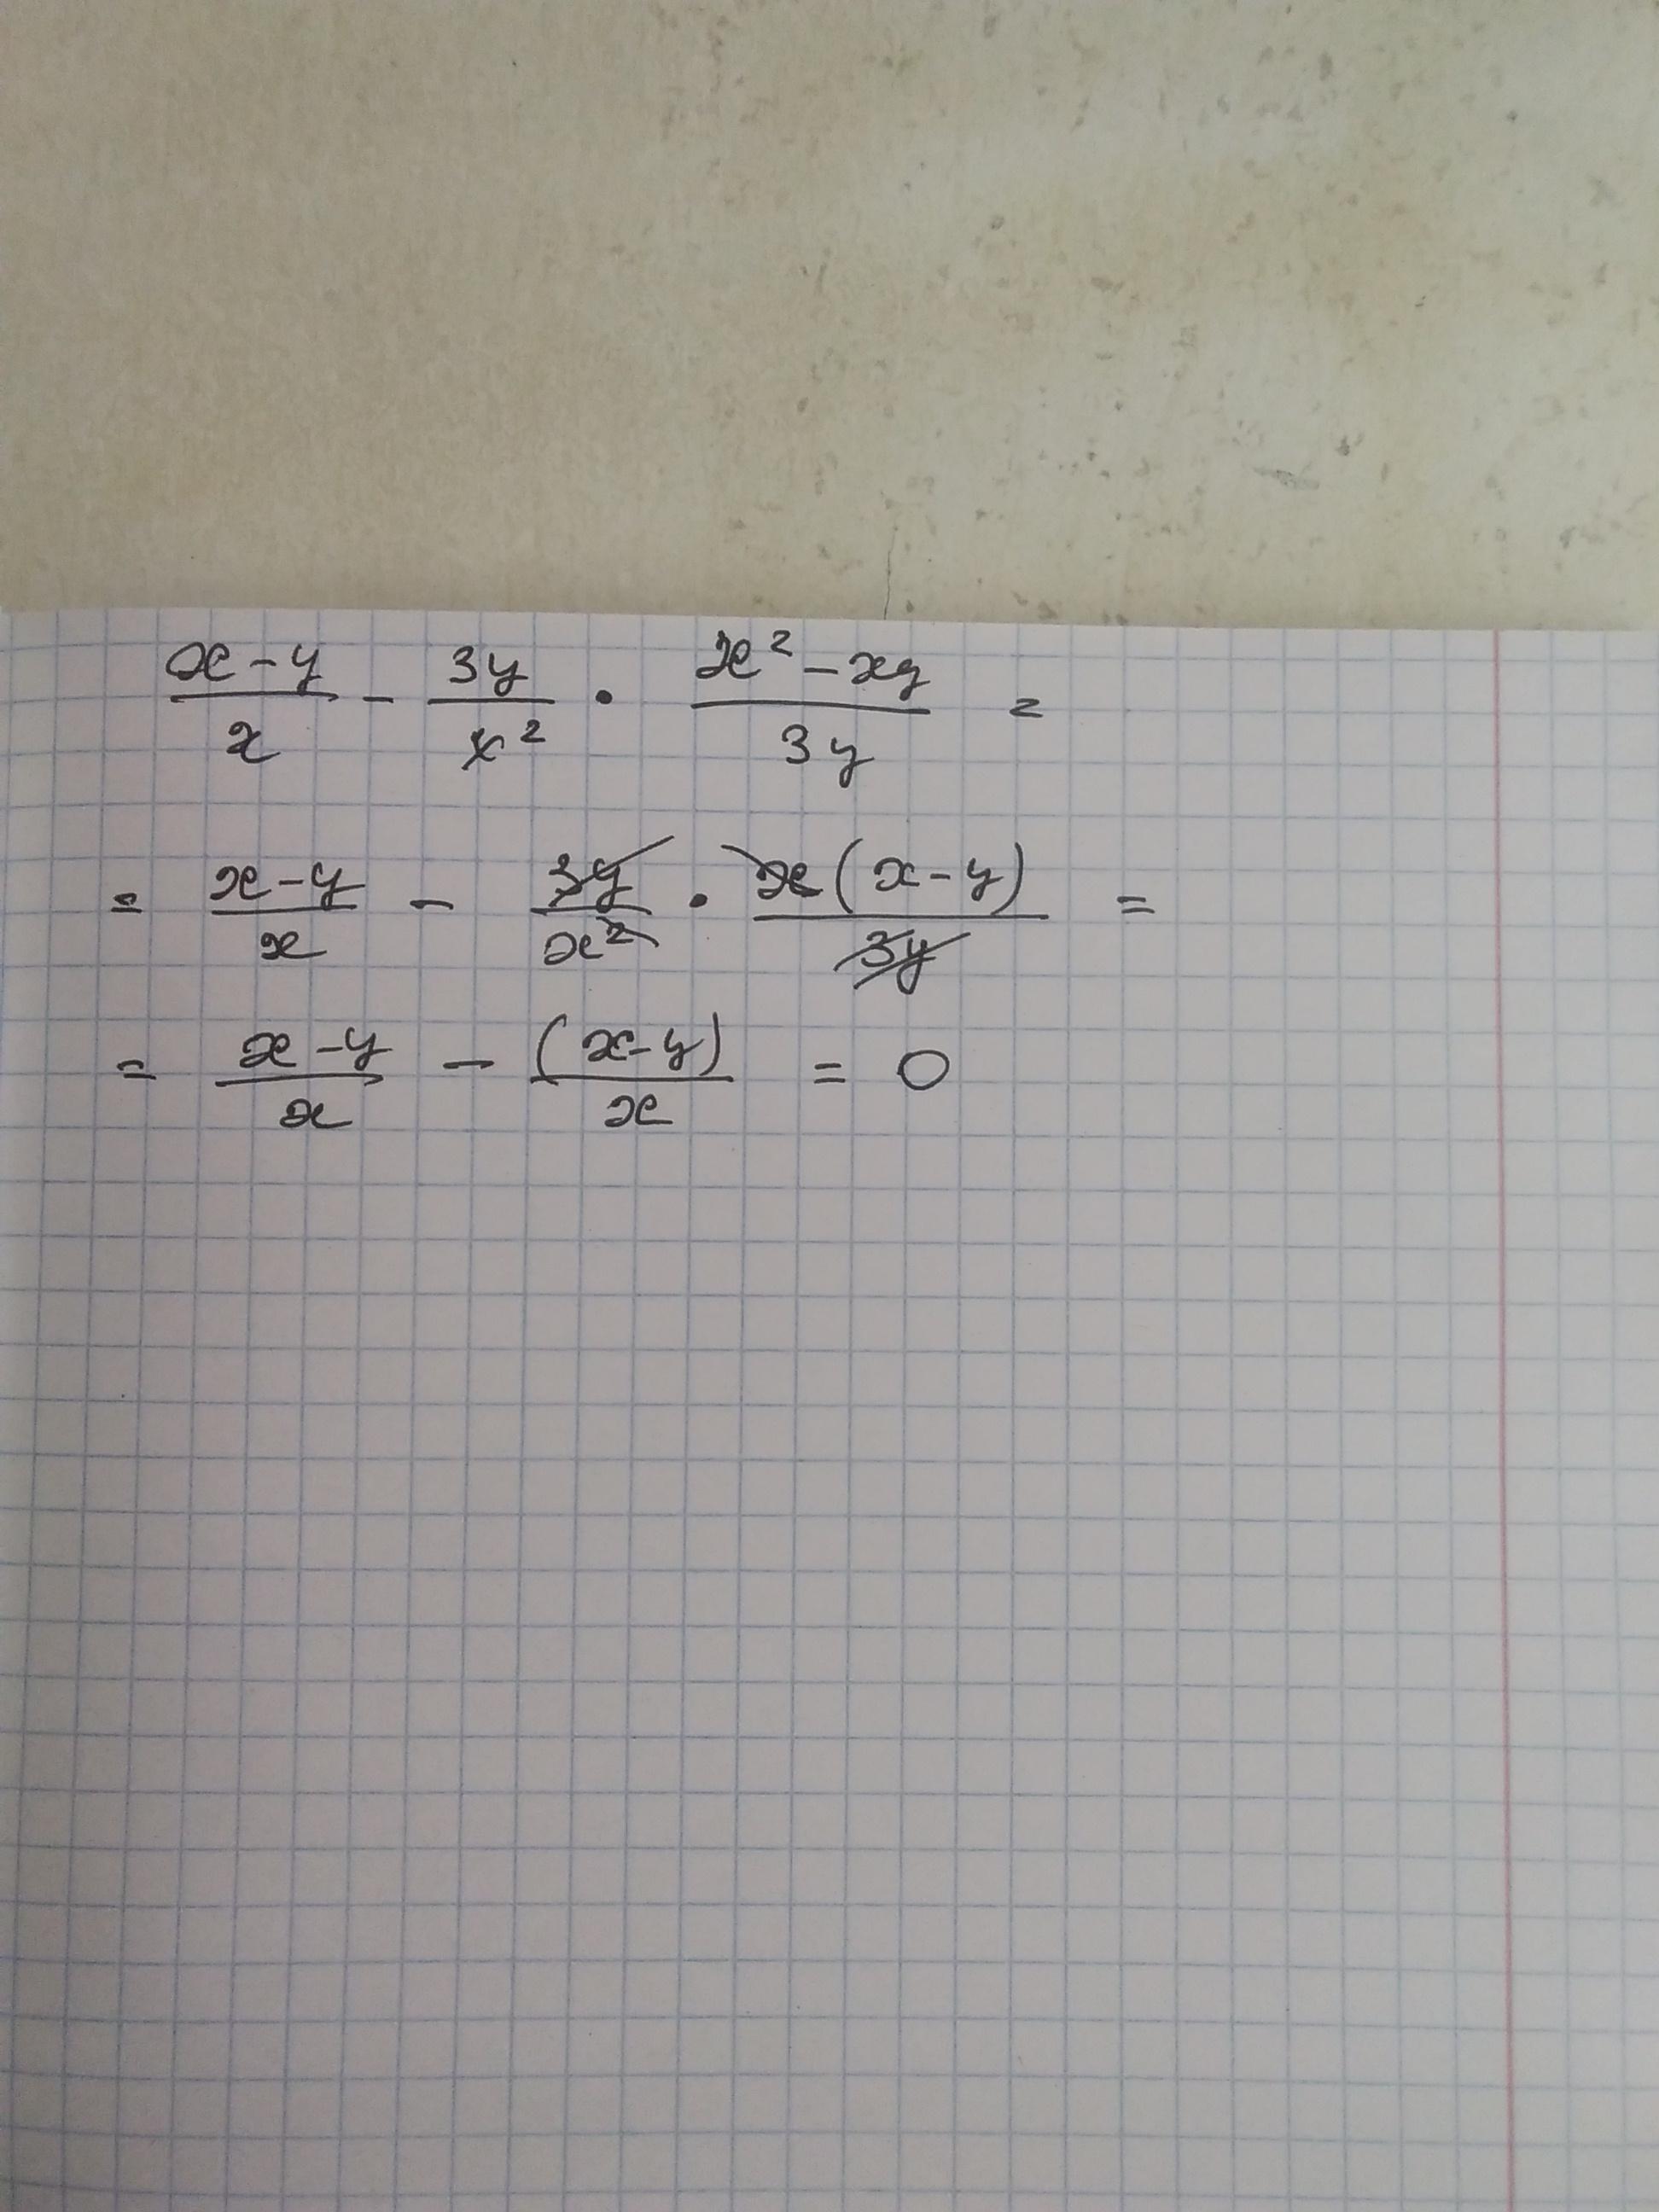 (x-y)/x - 3y/x² · (x²-xy)/3y =
= (x-y)/x - 3y/x² · x(x-y)/3y =
= (x-y)/x - (x-y)/x = 0